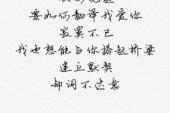 要如何翻译我爱你
寂寞不已
我也想能与你搭起桥梁
建立默契
却词不达意